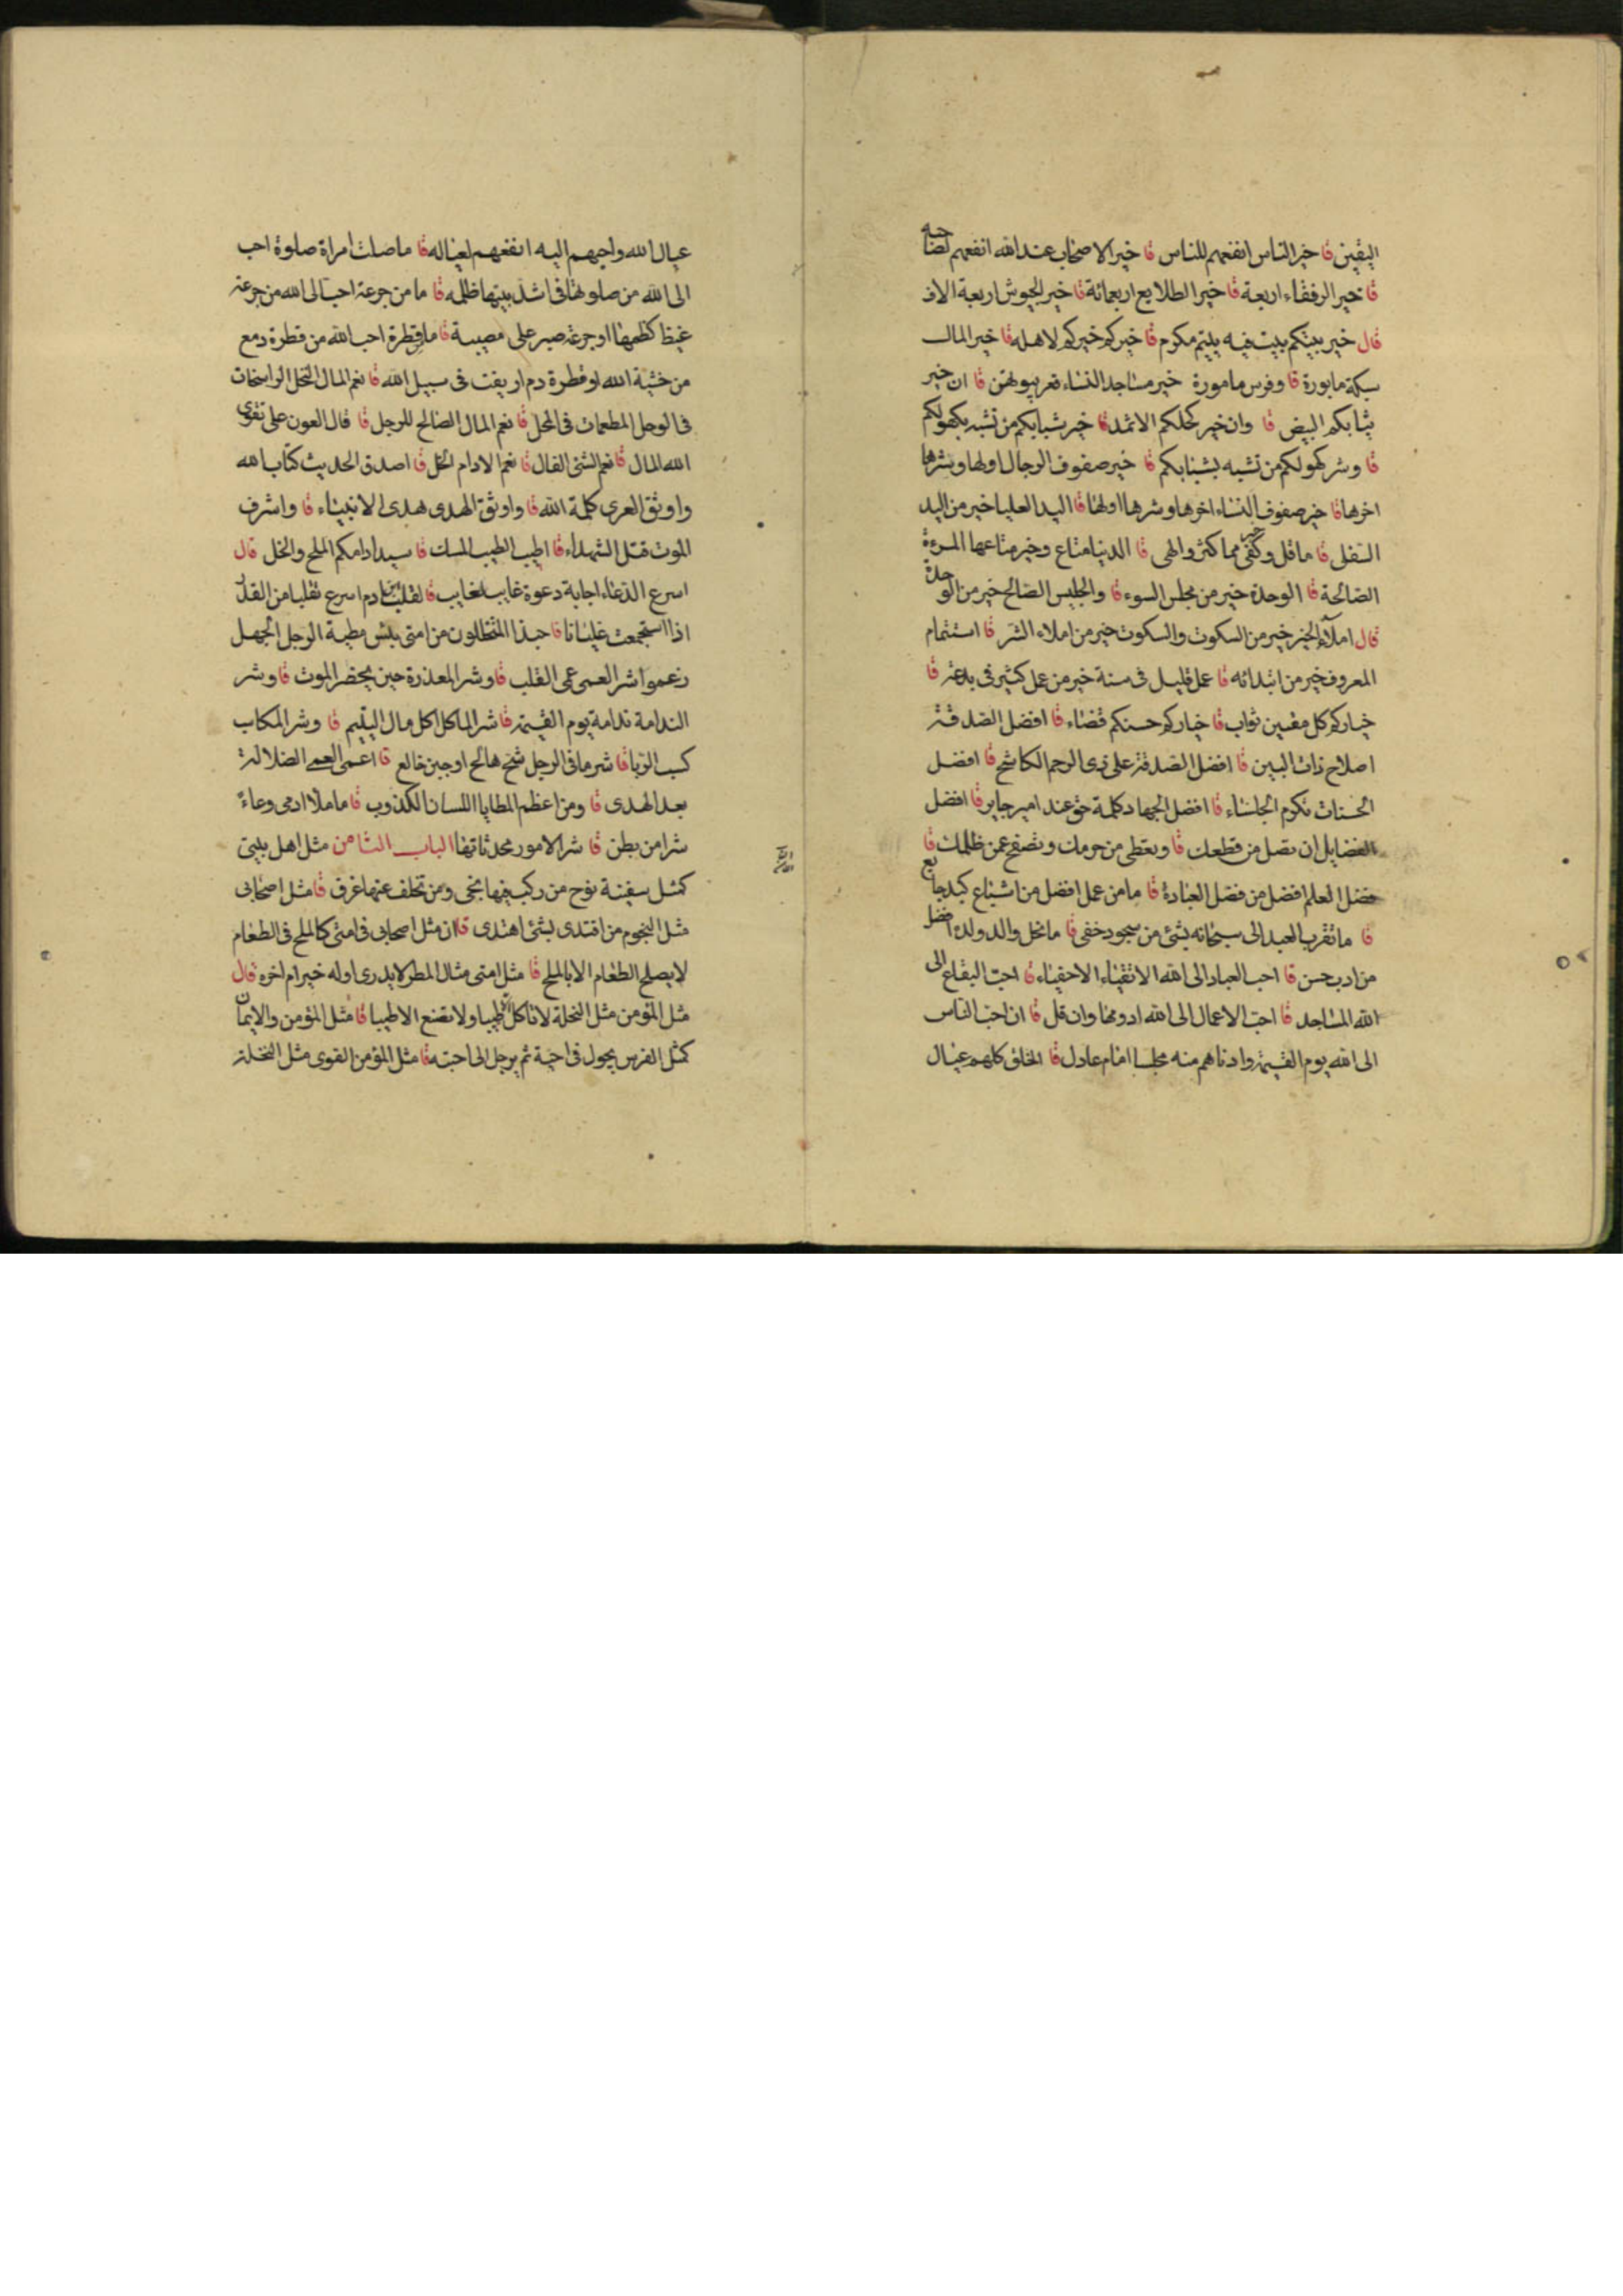 اليقين قا خير الناس انفعهم للناس قا خير الاصحاب عند الله انفعهم لصاحبه
قا خير الرفقاء اربعة قا خير الطلايع اربعمائة قا خير الجيوش اربعة الاف
قال خير بيتكم بيت فيه يتيم مكرم قا خيركم خيركم لاهله قا خير المال
سكة مابورة قا وفرس مامورة خير مساجد النساء قعر بيوتهن قا ان خير
ثيابكم البيض قا وان خير كحلكم الاثمد قا خير شبابكم من تشبه بكهولكم
قا وشر كهولكم من تشبه بشبابكم قا خير صفوف الرجال اولها وشرها
اخرها قا خير صفوف النساء اخرها وشرها اولها قا اليد العليا خير من اليد
السفلى قا ما قل وكفى خير مما كثر والهى قا الدنيا متاع وخير متاعها المرءة
الصالحة قا الوحدة خير من مجلس السوء قا والجليس الصالح خير من الوحدة
قال املاء الخير خير من السكوت والسكوت خير من املاء الشر قا استتمام
المعروف خير من ابتدائه قا عمل قليل فى سنة خير من عمل كثير فى بدعة قا
خياركم كل مفتن تواب قا خياركم حسنكم قضاء قا افضل الصدقة
اصلاح ذات البين قا افضل الصدقة على ذى الرحم الكاشح قا افضل
الحسنات تكرم الجلساء قا افضل الجهاد كلمة حق عند امير جاير قا افضل
الفضايل ان تصل من قطعك قا وتعطى من حرمك وتصفح عمن ظلمك قا
فضل العلم افضل من فضل العبادة قا ما من عمل افضل من اشباع كبد جايع
قا ما تقرب العبد الى سبحانه بشئ من سجود خفى قا ما نحل والد ولده افضل
من ادب حسن قا احب العباد الى الله الاتقياء الاحفياء قا احب البقاع الى
الله المساجد قا احب الاعمال الى الله ادومها وان قل قا ان احب الناس
الى الله يوم القيمة وادناهم منه مجلسا امام عادل قا الخلق كلهم عيال
عيال الله واحبهم اليه انفعهم لعياله قا ما صلت امراة صلوة احب
الى الله من صلوتها فى اشد بيتها ظلمه قا ما من جرعة احب الى الله من جرعة
غيظ كظمها او جرعة صبر على مصيبة قا ما قطرة احب الله من قطرة دمع
من خشية الله او قطرة دم اريقت فى سبيل الله قا نعم المال النخل الراسخات
فى الوحل المطعمات فى المحل قا نعم المال الصالح للرجل قا قال العون على تقوى
الله المال قا نعم الشئ الفال قا نعم الادام الخل قا اصدق الحديث كتاب الله
واوثق العرى كلمة الله قا واوثق الهدى هدى الانبياء قا واشرف
الموت قتل الشهداء قا اطيب الطيب المسك قا سيد ادامكم الملح والخل قال
اسرع الدعاء اجابة دعوة غايب لغايب قا لقلب ابن ادم اسرع تقلبا من القدر
اذا استجمعت غليانا قا حبذا المتخللون من امتى بئس مطية الرجل الجهل
زعموا شر العمى عمى القلب قا وشر المعذرة حين يحضر الموت قا وشر
الندامة ندامة يوم القيمة قا شر الماكل اكل مال اليتيم قا وشر المكاسب
كسب الربا قا شر ما فى الرجل شح هالع او جبن خالع قا اعمى العمى الضلالة
بعد الهدى قا ومن اعظم الخطايا اللسان الكذوب قا ما ملأ ادمى وعاءً
شرا من بطن قا شر الامور محدثاتها الباب الثامن مثل اهل بيتى
كمثل سفينة نوح من ركب فيها نجى ومن تخلف عنها غرق قا مثل اصحابى
مثل النجوم من اقتدى بشئ اهتدى قا ان مثل اصحابى فى امتى كالملح فى الطعام
لا يصلح الطعام الا بالملح قا مثل امتى مثال المطر لا يدرى اوله خير ام اخره قال
مثل المؤمن مثل النخلة لا تاكل الا طيبا ولا تضع الا طيبا قا مثل المؤمن والايمان
كمثل الفرس يجول فى اخية ثم يرجل الى اخيته قا مثل المؤمن القوى مثل النخلة